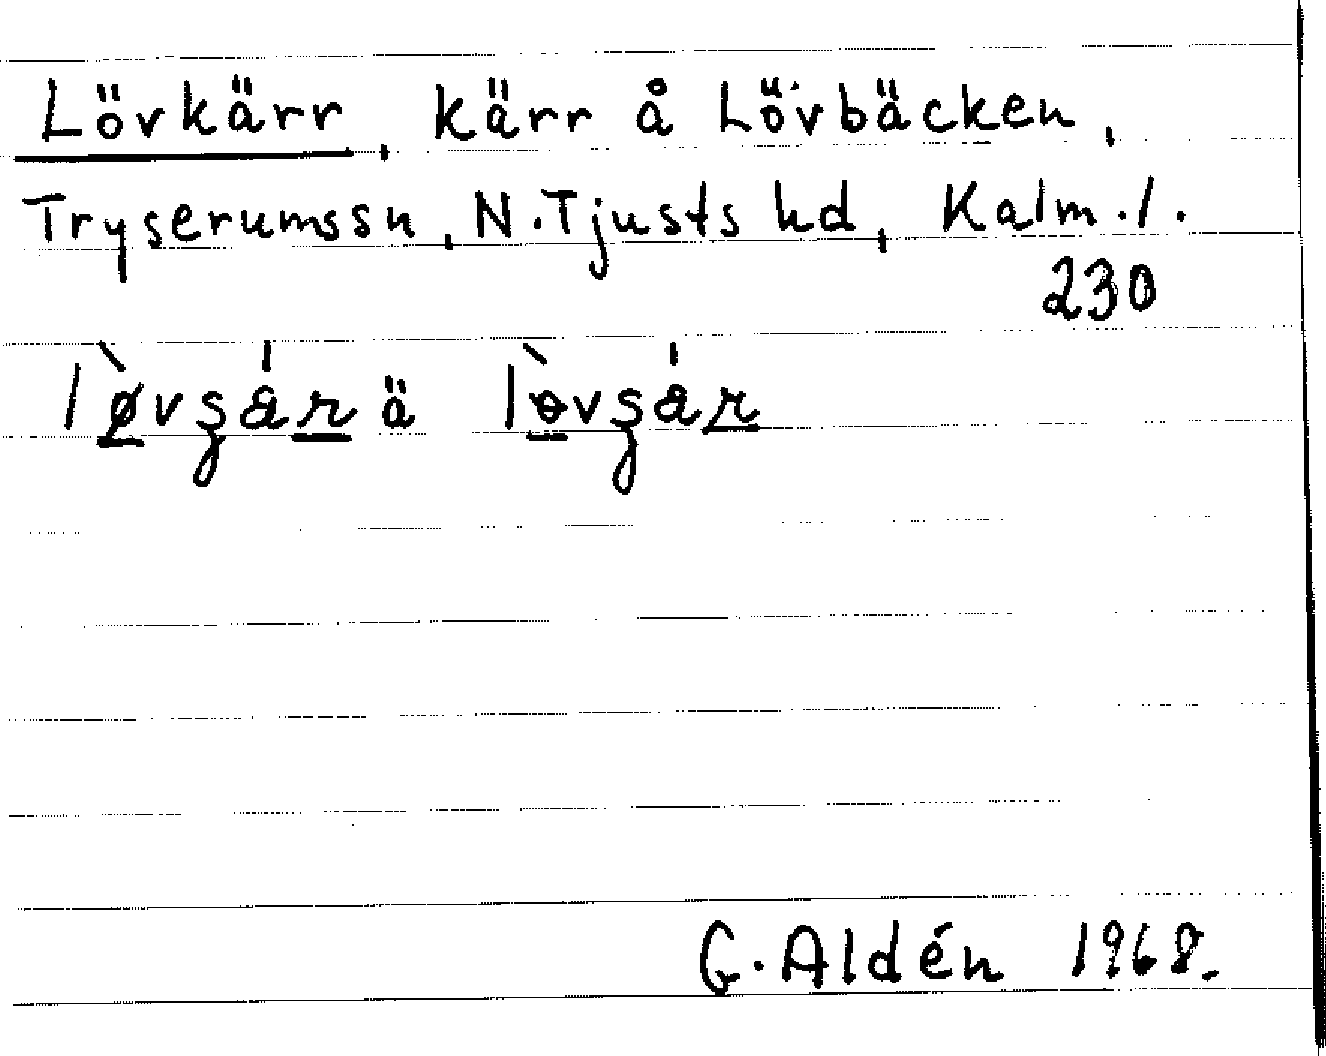 Lövkärr, kärr å Lövbäcken,
Tryserumssn, N. Tjusts hd, Kalm. l.
230
G. Aldén 1968.